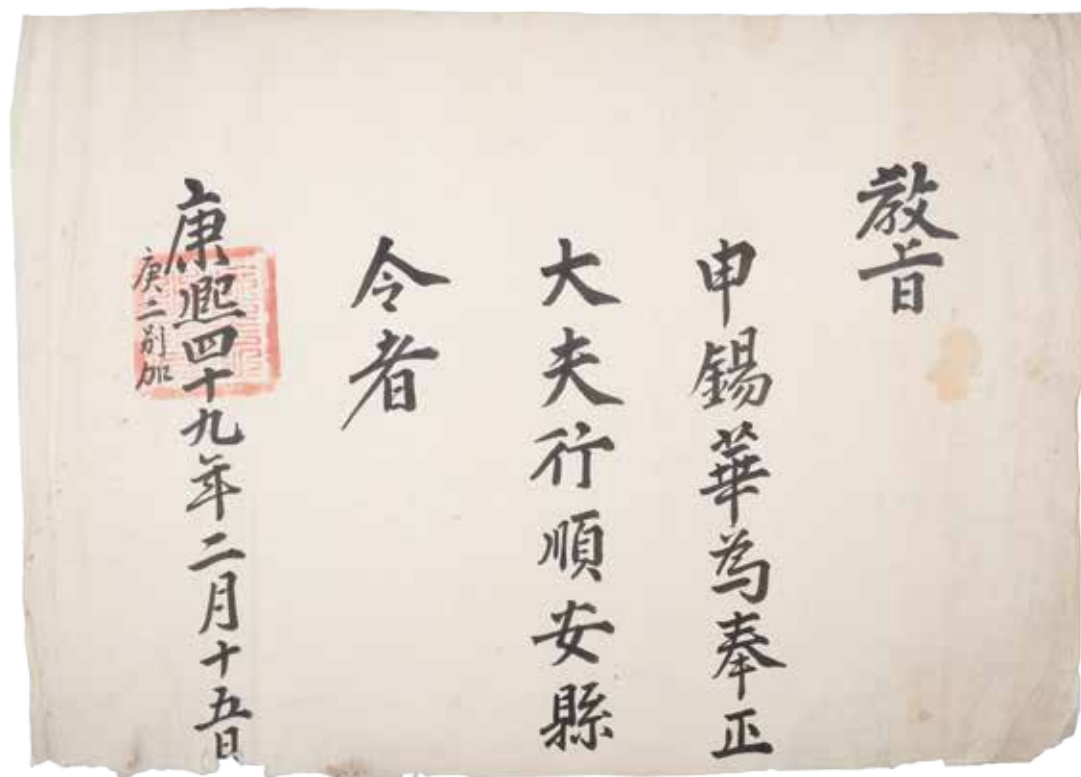 敎旨
申錫華為奉正
大夫行順安縣
令者
康熙四十九年二月十五日
庚二別加